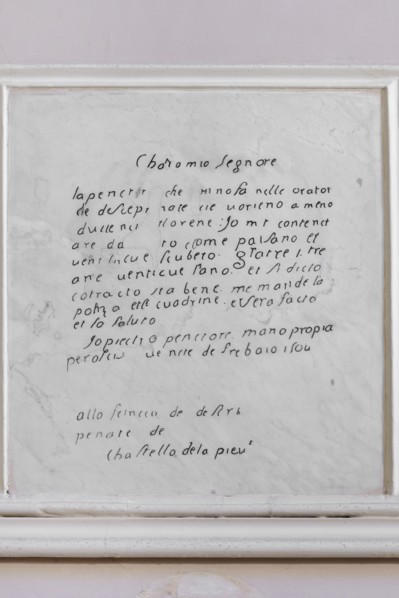 Charo mio segnore
la penctur che nelle orator
de desciepi nate cie vorieno a meno
ducente florene: Jo me contenet
are da to come paisano et
venticincue scubeto. glatre i tre
ane venticue lano. et si dicto
cotracto sta bene me mande la
poliza ette cuadrine. e sera facto
et lo saluto
Jo pietro penctore mano propia
peroscia vente de frebaio 1504
allo scinceco de
penate de
Chastello dela pieve